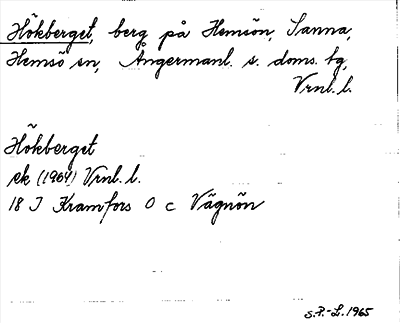 Hökberget, berg på Hemsön, Sanna,
Hemsö sn, Ångermanl. s. doms. tg,
Vrnl. l.
Hökberget
ek (1964) Vrnl. l.
18 I Kramfors O c Vägnön
S.P.-L. 1965